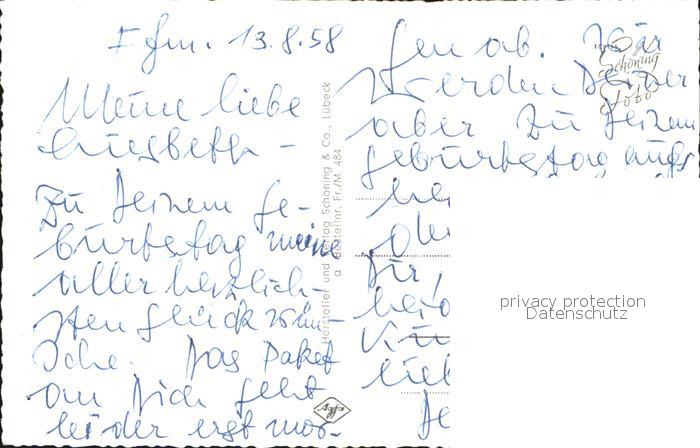 Ffm. 13.8.58
Meine liebe
Liesbeth –
Zu Deinem Ge-
burtstag meine
aller herzlich-
sten Glückwün-
sche. Das Paket
an Dich geht
leider erst mor-
gen ab. Wir
werden Deiner
aber zu Deinem
Geburtstag
Dir,
Schöning
Foto
Hersteller und Verlag Schöning & Co., Lübeck
Bestellnr. Fr./M. 484
Agfa
privacy protection
Datenschutz